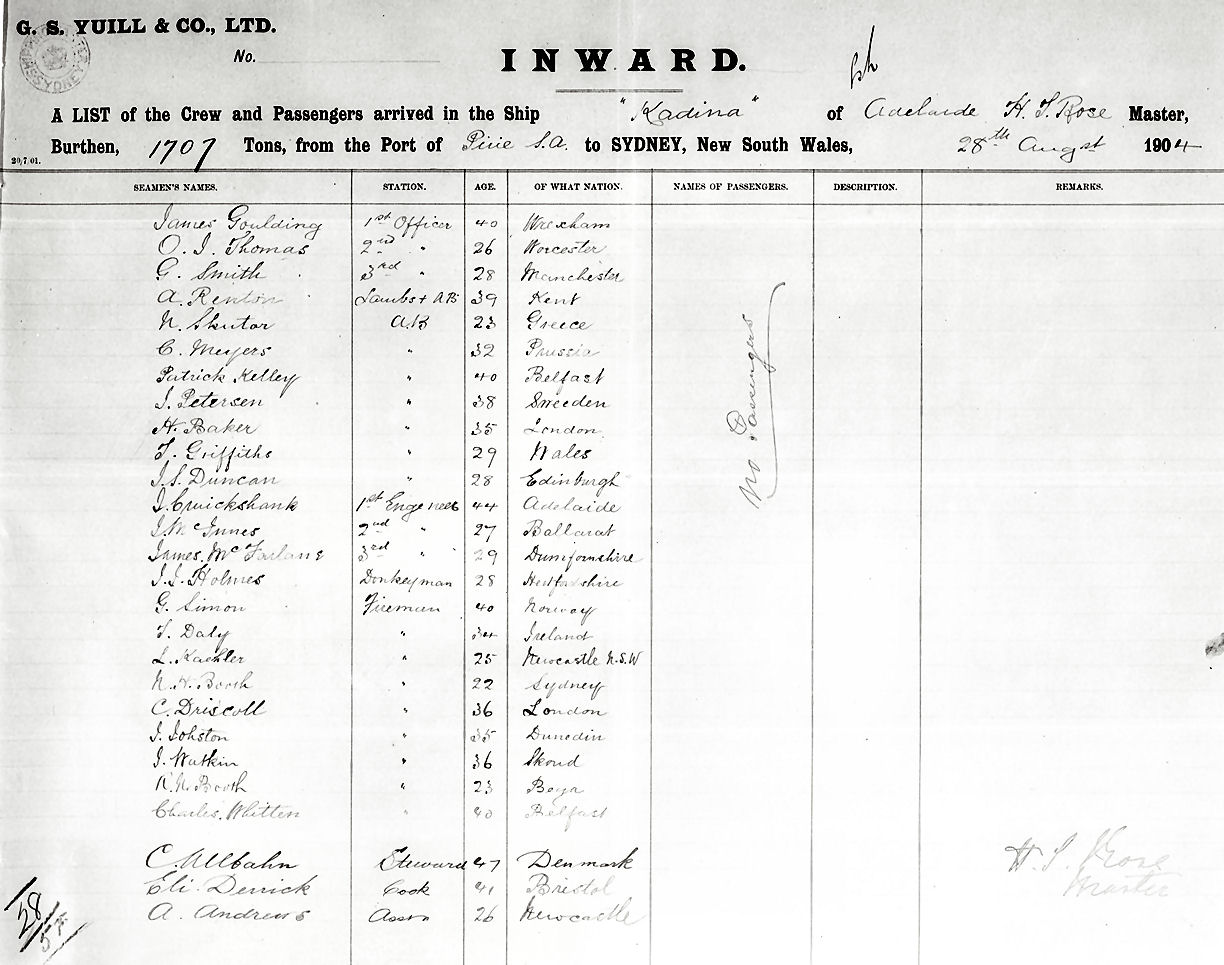 G. S. YUILL & CO., LTD.
No.
INWARD.
A LIST of the Crew and Passengers arrived in the Ship "Kadina" of Adelaide H. S. Rose Master,
Burthen, 1707 Tons, from the Port of Pirie S.A. to SYDNEY, New South Wales, 28th Augst 1904
20,7,01.
SEAMEN'S NAMES. STATION. AGE. OF WHAT NATION. NAMES OF PASSENGERS. DESCRIPTION. REMARKS.
James Goulding 1st Officer 40 Wrexham
O. J. Thomas 2nd " 26 Worcester
G. Smith 3rd " 28 Manchester
A. Renton Lamps + AB 39 Kent
N. Skutor AB 23 Greece
C. Meyers " 32 Prussia
Patrick Kelley " 40 Belfast
J. Petersen " 38 Sweeden
H. Baker " 35 London
T. Griffiths " 29 Wales
J. S. Duncan " 28 Edinburgh
J. Cruickshank 1st Engeneer 44 Adelaide
J. McInnes 2nd " 27 Ballarat
James McFarlane 3rd " 29
J. J. Holmes Donkeyman 28 Hertfordshire
G. Simon Fireman 40 Norway
T. Daly " 34 Ireland
L. Kaehler " 25 Newcastle N.S.W
N. H. Booth " 22 Sydney
C. Driscoll " 36 London
J. Johston " 35 Dunedin
J. Watkin " 36
N. Booth " 23
Charles Whitten " 40 Belfast
No Passengers
C. Ullbahn Steward 47 Denmark
Eli Derrick Cook 41 Bristol
A. Andrews Asstn 26 Newcastle
H. S. Rose
Master
28